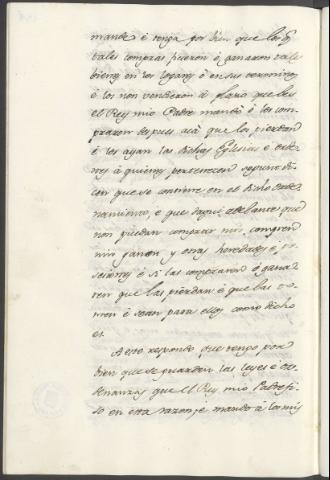 mande é tenga por bien que los q̃
tales compras ficieron ó ganaron tale
bienes en los logares ó en sus terminos
é los non vendieron á plazo que les
el Rey mio Padre mandó é los com-
praron despues acá que los pierdan
é los ayan las dichas Eglesias é orde-
nes á quienes pertenecen segunt di-
cen que se contiene en el dicho orde-
namiento, é que daqui adelante que
non puedan comprar nin compren
nin ganen y otras heredades é po-
sesiones é si las compraren ó gana-
ren que las pierdan é que las to-
men é sean para ellos como dicho
es.
A esto respondo que tengo por
bien que se guarden las leyes é or-
denanzas que el Rey mio Padre fi-
zo en esta razon, é mando á los mis